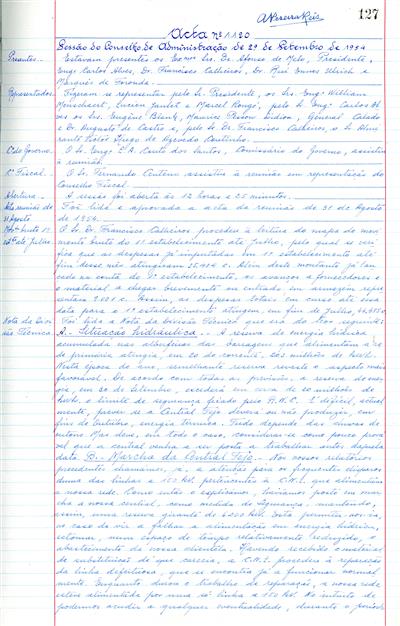 127
Acta nº 1120
Sessão do Conselho de Administração de 29 de Setembro de 1954
Presentes Estavam presentes os Exmos Srs. Dr. Afonso de Melo, Presidente,
Engº Carlos Alves, Dr. Francisco Calheiros, Dr. Rui Ennes Ulrich e
Marquês de
Representados Fizeram-se representar pelo Sr. Presidente, os Srs. Engº William
Lucien e Marcel pelo Sr. Engº Carlos Al-
ves os Srs. Eugène Maurice General
e Dr. Augusto de Castro e, pelo Sr. Dr. Francisco Calheiros, o Sr. Almi-
rante Vitor Hugo de Azevedo Coutinho.
Cº do Governo O Sr. Engº Canto dos Santos, Comissário do Governo, assistiu
à reunião.
Cº Fiscal O Sr. Fernando assistiu à reunião em representação do
Conselho Fiscal.
Abertura A sessão foi aberta às 12 horas e 25 minutos.
Foi lida e aprovada a acta da reunião de 31 de Agosto
31 Agosto de 1954.
O Sr. Dr. Francisco Calheiros procedeu à leitura do mapa do movi-
mento do 1º estabelecimento até Julho, pelo qual se veri-
fica que as despesas já imputadas em 1º estabelecimento até
fim desse mês atingiram Além deste montante
na conta de 1º estabelecimento, avanços a fornecedores e
o material a chegar brevemente ou entrado em armazém repre-
sentava Assim, as despesas totais em curso até essa
data para o 1º estabelecimento atingem, em fim de Julho,
Foi lida a Nota da Divisão Técnica que era do teor seguinte:
A.- Situação hidráulica.- A reserva de energia hidráulica
acumulada nas albufeiras das barragens que alimentam a re-
de primária atingia, em 20 do corrente, milhões de kwh.
Nesta época do ano, semelhante reserva reveste o aspecto mais
favorável. De acordo com todas as previsões, a reserva de ener-
gia, em 20 de Setembro, excedeu em cerca de milhões de
kwh. o limite de segurança fixado pelo R.N.C. É difícil, actual-
mente, prever se a Central Tejo deverá ou não produzir, em
fins de Outubro, energia térmica. Tudo depende das chuvas de
outono. Mas deve, em todo o caso, considerar-se como pouco prová-
vel que a central venha a ser posta a trabalhar antes daquela
data. B.- Marcha da Central Tejo.- Nos nossos relatórios
precedentes chamámos, já, a atenção para os frequentes disparos
duma das linhas a 150 kV. pertencentes à C.N.E. que alimentam
a nossa rede. Como então o explicámos, havíamos posto em mar-
cha a nossa central, como medida de segurança, mantendo,
assim, uma reserva girante de kw. Esta permitir-nos-ia
no caso de vir a falhar a alimentação em energia hidráulica,
retomar, num espaço de tempo relativamente reduzido, o
abastecimento da nossa clientela. Havendo recebido o material
de substituição de que carecia, a C.N.E. procedeu à reparação
da linha defeituosa, que se encontra já a funcionar normal-
mente. Enquanto durou o trabalho de reparação, a nossa rede
esteve alimentada por uma só linha a 150 kV. No intuito de
podermos acudir a qualquer eventualidade, durante o período